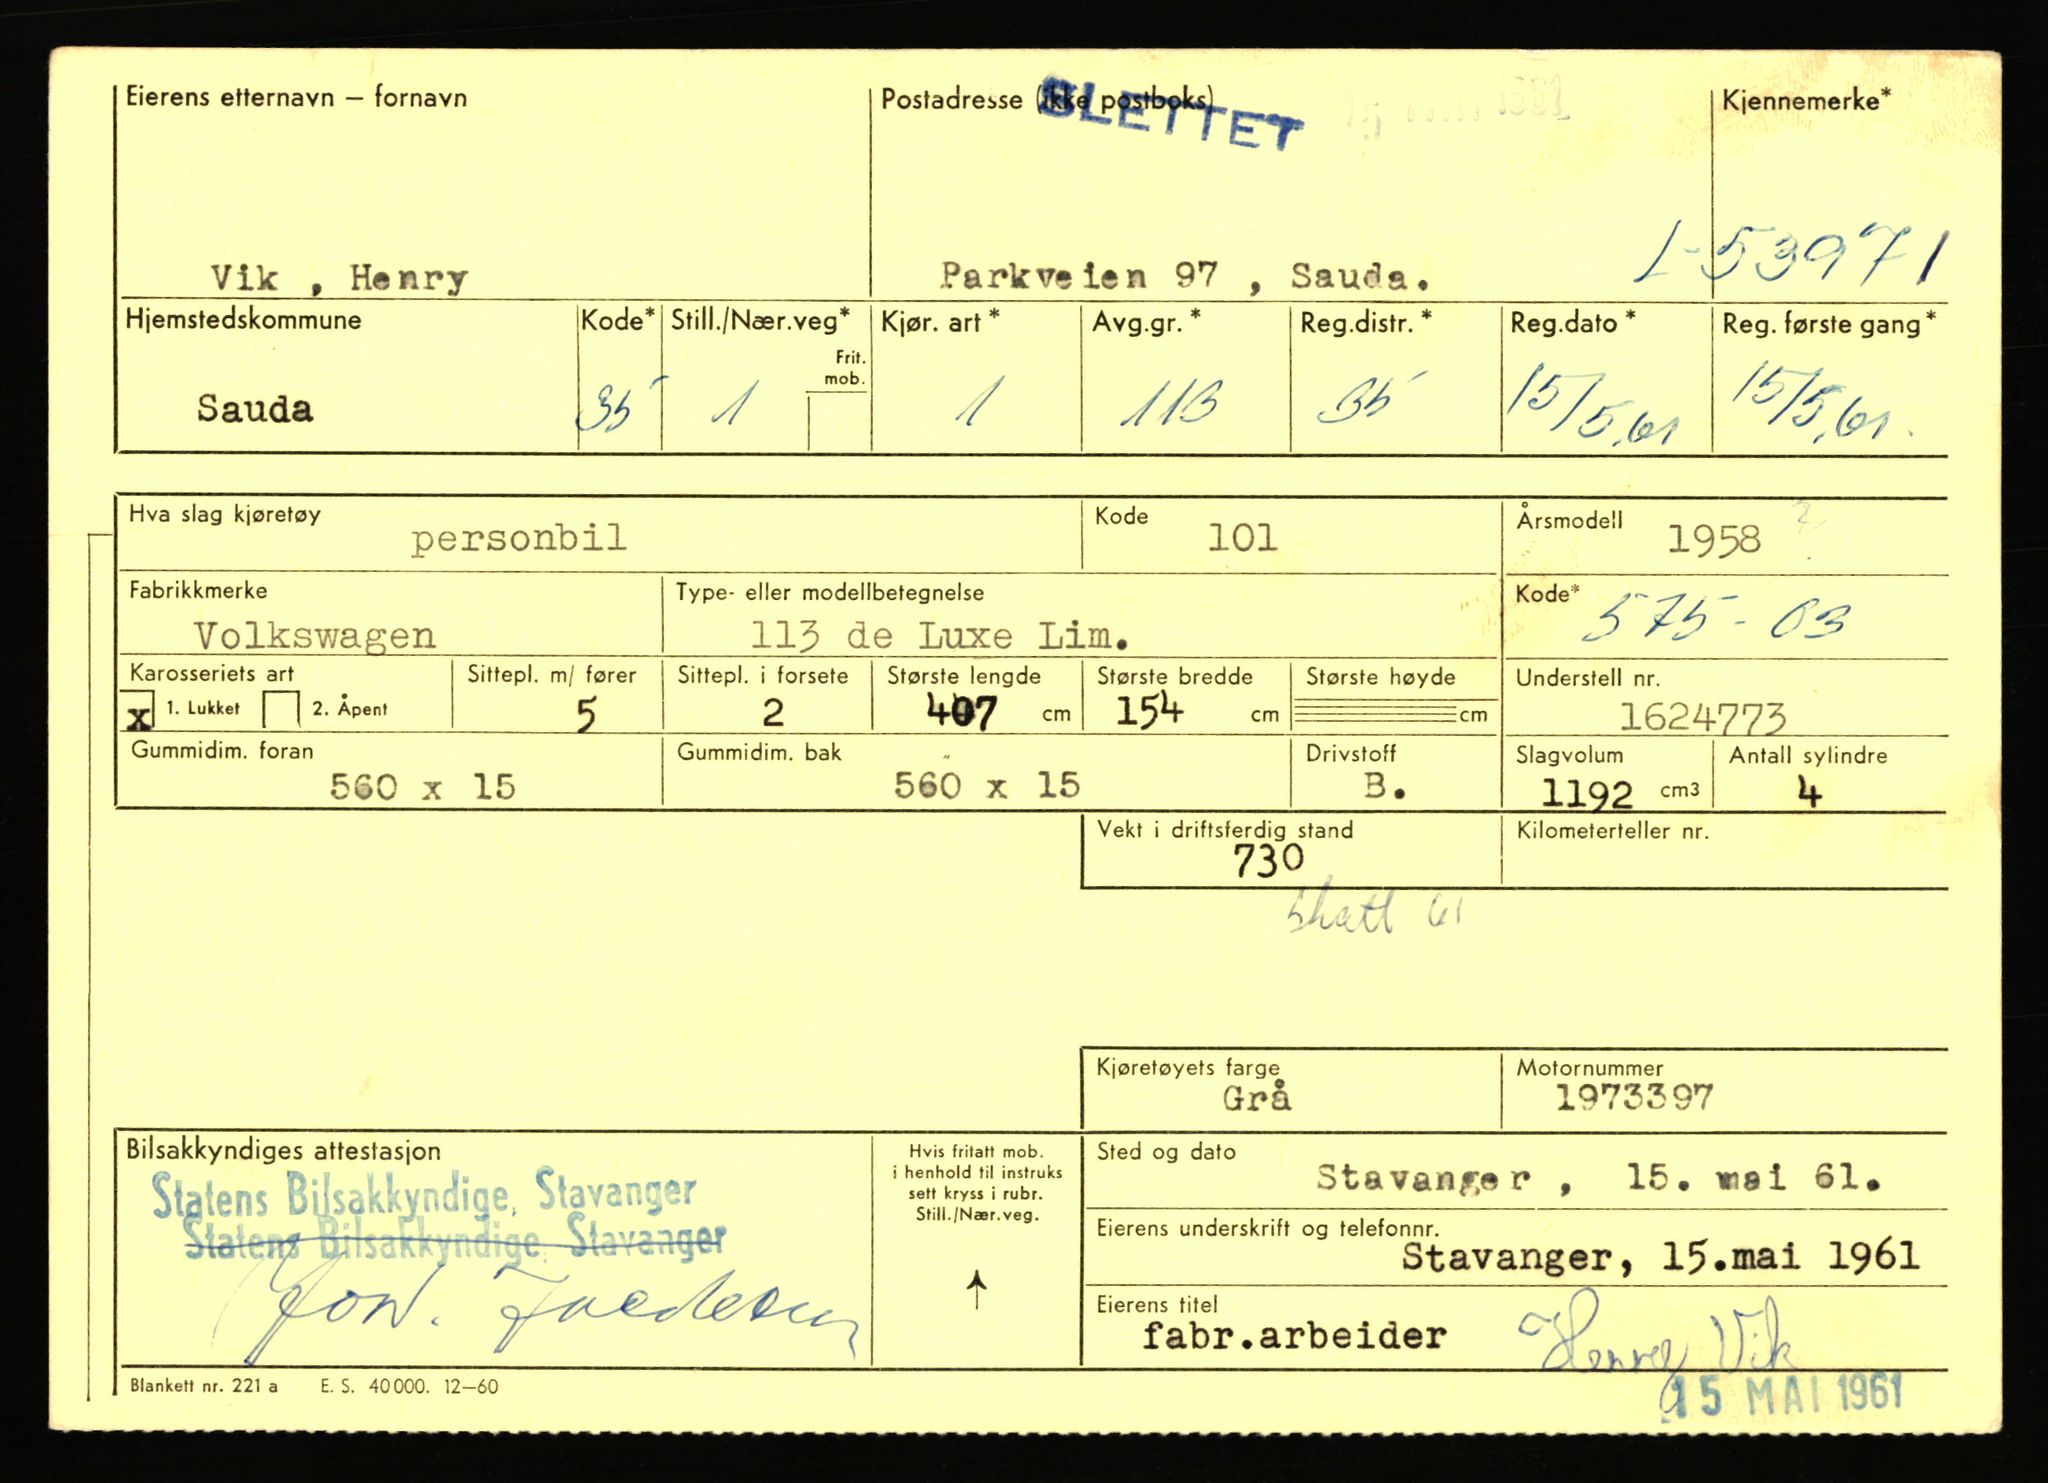 Eierens etternavn – fornavn
Postadresse (ikke postboks)
SLETTET
Kjennemerke*
Vik , Henry
Parkveien 97 , Sauda.
L-53971
Hjemstedskommune
Kode*
Still./Nær.veg*
Kjør. art *
Avg.gr. *
Reg.distr. *
Reg.dato *
Reg. første gang *
Frit.
mob.
Sauda
35
1
1
113
35
15/5.61
15/5.61.
Hva slag kjøretøy
personbil
Kode
101
Årsmodell
1958
Fabrikkmerke
Volkswagen
Type- eller modellbetegnelse
113 de Luxe Lim.
Kode*
575-03
Karosseriets art
x 1. Lukket
2. Åpent
Sittepl. m/ fører
5
Sittepl. i forsete
2
Største lengde
407 cm
Største bredde
154 cm
Største høyde
cm
Understell nr.
1624773
Gummidim. foran
560 x 15
Gummidim. bak
560 x 15
Drivstoff
B.
Slagvolum
1192 cm3
Antall sylindre
4
Vekt i driftsferdig stand
730
Kilometerteller nr.
skatt 61
Kjøretøyets farge
Grå
Motornummer
1973397
Bilsakkyndiges attestasjon
Statens Bilsakkyndige, Stavanger
Statens Bilsakkyndige, Stavanger
Hvis fritatt mob.
i henhold til instruks
sett kryss i rubr.
Still./Nær.veg.
Sted og dato
Stavanger , 15. mai 61.
Eierens underskrift og telefonnr.
Stavanger, 15.mai 1961
Eierens titel
fabr.arbeider
Henry Vik
15 MAI 1961
Blankett nr. 221 a E. S. 40 000. 12–60